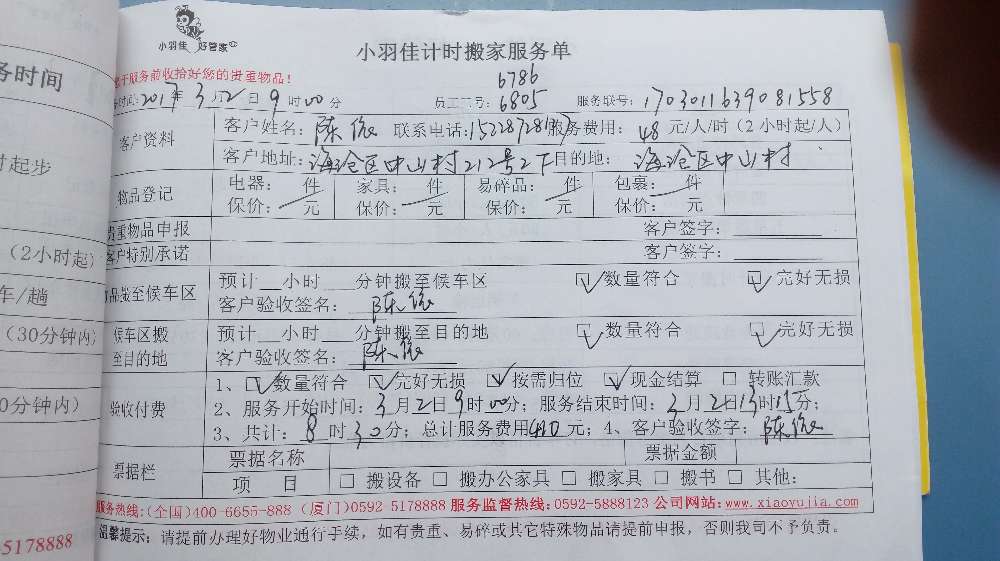 务时间
时起步
(2小时起)
年/趟
(30分钟内)
0分钟内)
5178888
小羽佳 好管家
小羽佳计时搬家服务单
于服务前收拾好您的贵重物品!
时间:2017年3月2日9时00分 员工工号: 6786 6805 服务联号: 1703011639081558
客户资料 客户姓名: 陈 联系电话: 服务费用: 48 元/人/时(2小时起/人)
客户地址: 海沧区中山村212号2F 目的地: 海沧区中山村
物品登记 电器: 件 家具: 件 易碎品: 件 包裹: 件
保价: 元 保价: 元 保价: 元 保价: 元
贵重物品申报 客户签字:
客户特别承诺 客户签字:
品搬至候车区 预计__小时___分钟搬至候车区 ☑数量符合 ☑完好无损
客户验收签名: 陈
候车区搬至目的地 预计__小时___分钟搬至目的地 ☑数量符合 ☑完好无损
客户验收签名: 陈
验收付费 1、☑数量符合 ☑完好无损 ☑按需归位 ☑现金结算 □ 转账汇款
2、服务开始时间:3月2日9时00分;服务结束时间:3月2日13时15分;
3、共计:8时30分;总计服务费用410元;4、客户验收签字: 陈
票据栏 票据名称 票据金额
项 目 □ 搬设备 □ 搬办公家具 □ 搬家具 □ 搬书 □ 其他:
服务热线:(全国)400-6655-888 (厦门)0592-5178888 服务监督热线:0592-5888123 公司网站:www.xiaoyujia.com
温馨提示:请提前办理好物业通行手续,如有贵重、易碎或其它特殊物品请提前申报,否则我司不予负责。